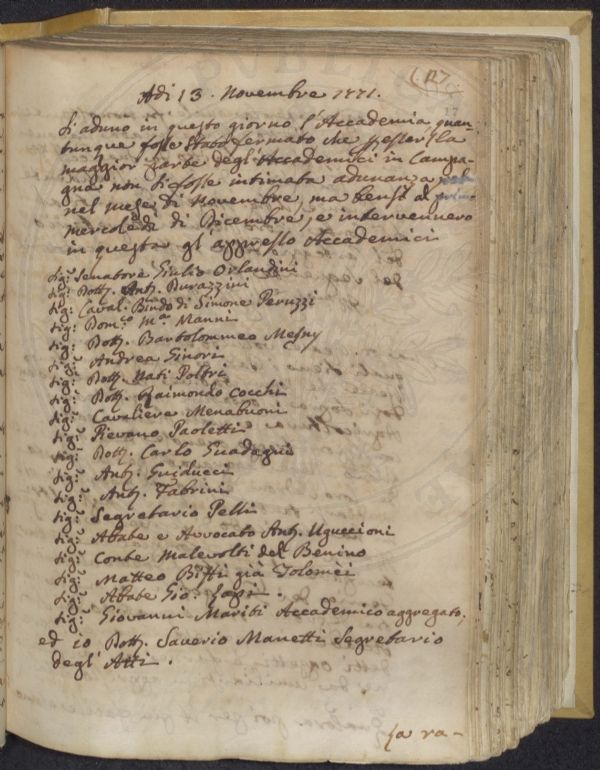 127
Adi 13. Novembre 1771.
Si adunò in questo giorno l'Accademia quan-
tunque fosse stato fermato che p esser la
maggior parte degl'Accademici in Campa-
gna non si fosse intimata adunanza
nel mese di Novembre, ma bensì al primo
mercoledì di Dicembre, e intervennero
in questa gl appresso Accademici
Sig: Senatore Giulio Orlandini
Sig: Dott. Ant. Durazzini
Sig: Caval. Bindo di Simone Peruzzi
Sig: Dom.co M.a Manni
Sig: Dott. Bartolommeo Mesny
Sig: Andrea Ginori
Sig: Dott. Nati Poltri
Sig: Dott. Raimondo Cocchi
Sig: Cavaliere Menabuoni
Sig: Pievano Paoletti
Sig: Dott. Carlo Guadagni
Sig: Ant. Guiducci
Sig: Ant. Fabrini
Sig: Segretario Pelli
Sig: Abate e Avvocato Ant. Uguccioni
Sig: Conte Malevolti del Benino
Sig: Matteo Biffi già Tolomei
Sig: Abate Gio: Lapi.
Sig: Giovanni Mariti Accademico aggregato,
ed io Dott. Saverio Manetti Segretario
degl'Atti.
la ra-